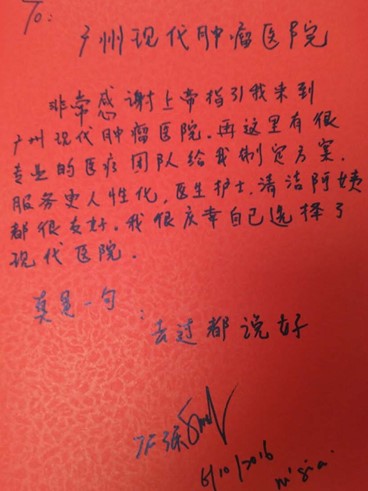 To:
广州现代肿瘤医院
非常感谢上帝指引我来到
广州现代肿瘤医院.再这里有很
专业的医疗团队给我制定方案.
服务更人性化,医生护士,清洁阿姨
都很友好.我很庆幸自己选择了
现代医院.
真是一句:
去过都说好
6/10/2016